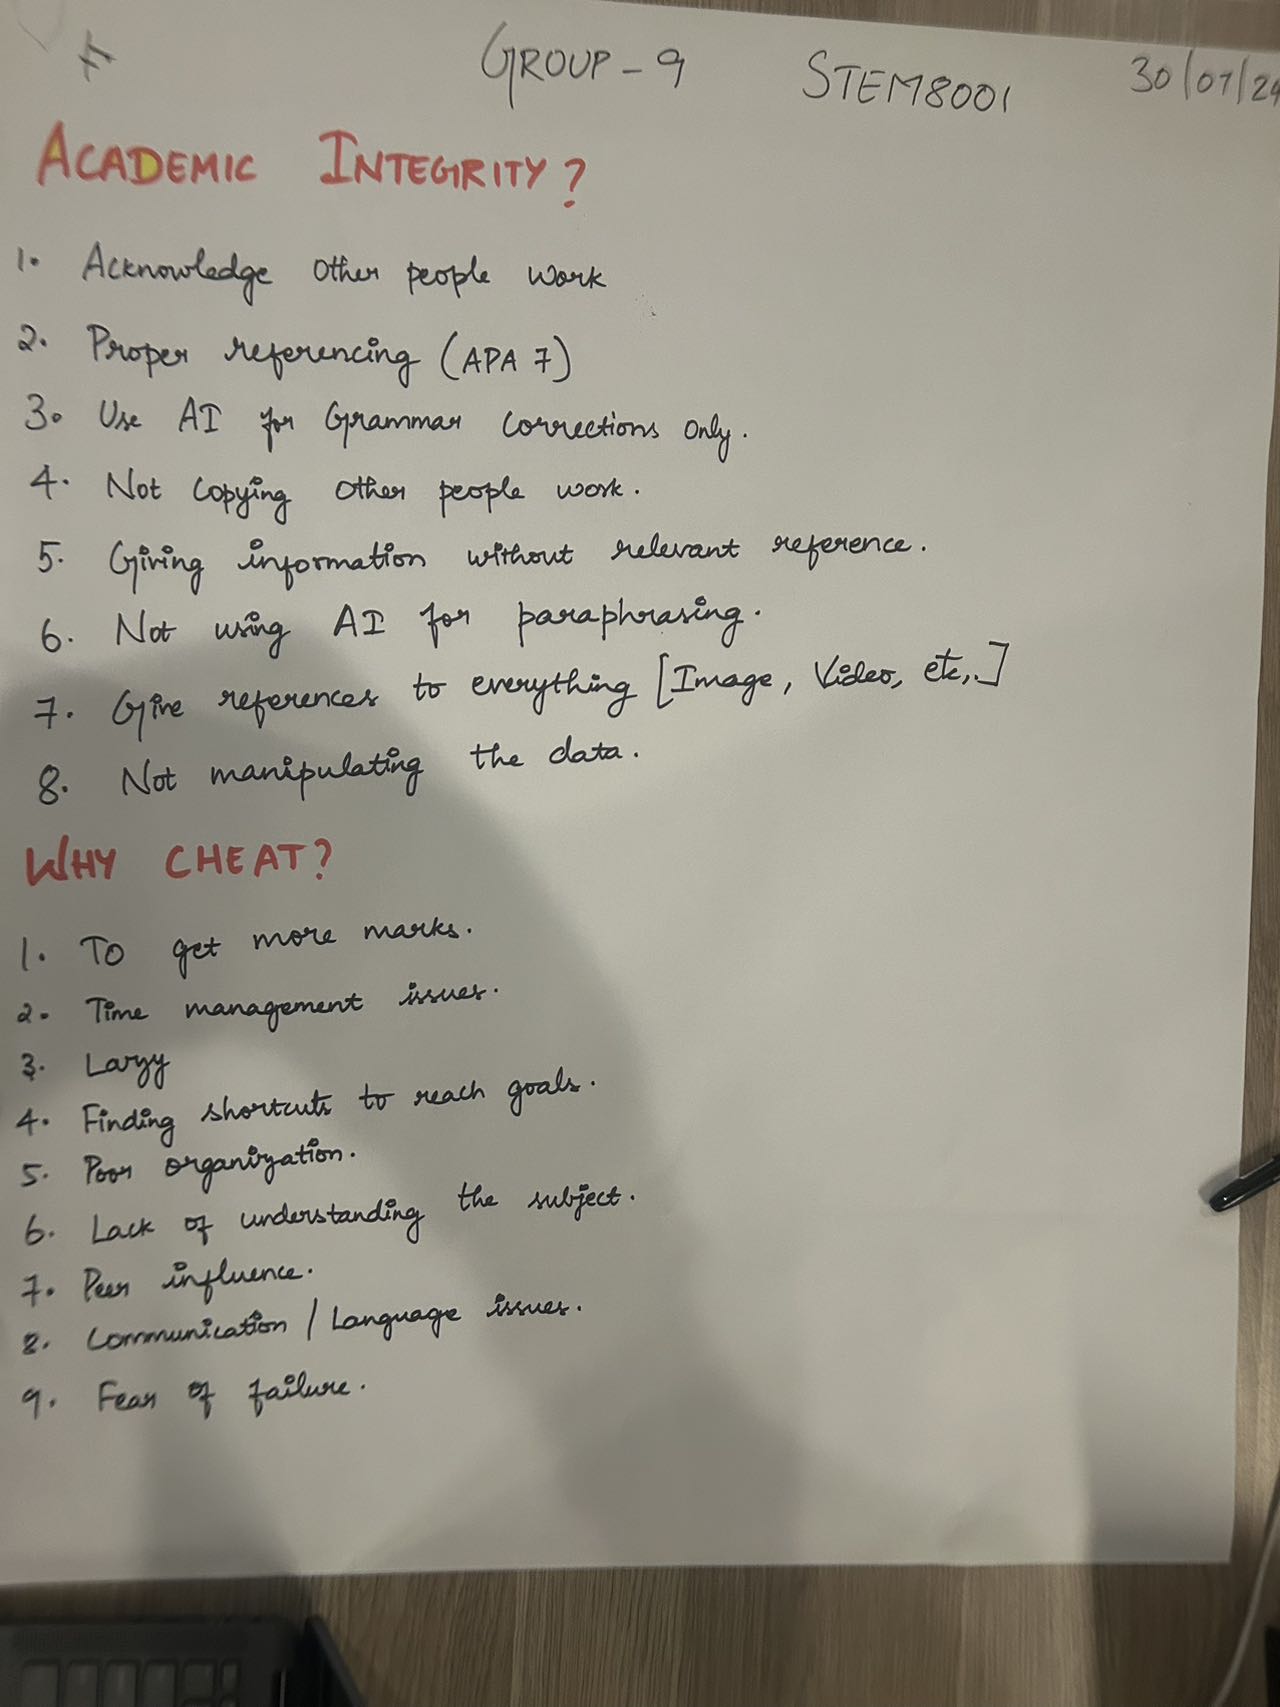 GROUP - 9 STEM8001 30/07/24
ACADEMIC INTEGRITY?
1. Acknowledge other people work
2. Proper referencing (APA 7)
3. Use AI for Grammar Corrections only.
4. Not copying other people work.
5. Giving information without relevant reference.
6. Not using AI for paraphrasing.
7. Give references to everything [Image, Video, etc,.]
8. Not manipulating the data.
WHY CHEAT?
1. To get more marks.
2. Time management issues.
3. Lazyy
4. Finding shortcuts to reach goals.
5. Poor organization.
6. Lack of understanding the subject.
7. Peer influence.
8. Communication / Language issues.
9. Fear of failure.